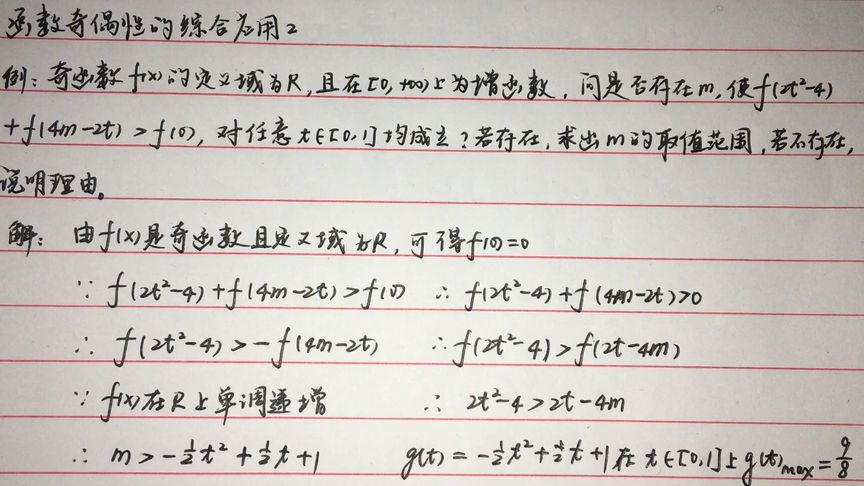 函数奇偶性的综合应用2
例：奇函数f(x)的定义域为R,且在[0,+∞)上为增函数,问是否存在m,使f(2t²-4)
+f(4m-2t)>f(0),对任意t∈[0,1]均成立?若存在,求出m的取值范围,若不存在,
说明理由。
解： 由f(x)是奇函数且定义域为R,可得f(0)=0
∵ f(2t²-4)+f(4m-2t)>f(0) ∴ f(2t²-4)+f(4m-2t)>0
∴ f(2t²-4)>-f(4m-2t) ∴ f(2t²-4)>f(2t-4m)
∵ f(x)在R上单调递增 ∴ 2t²-4>2t-4m
∴ m>-½t²+½t+1 g(t)=-½t²+½t+1在t∈[0,1]上g(t)max=9/8